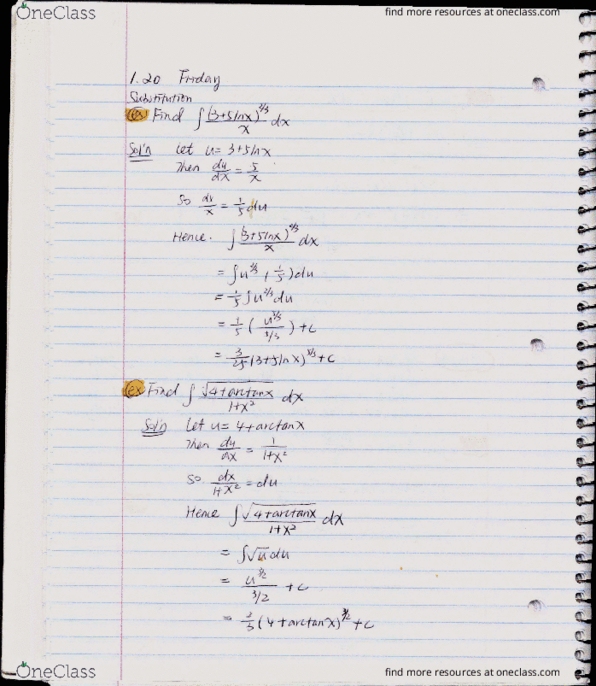 OneClass
find more resources at oneclass.com
1.20 Friday
Substitution
ex Find ∫ (3+5lnx)^2/3 / x dx
Sol'n Let u= 3+5lnx
Then du/dx = 5/x
So dx/x = 1/5 du
Hence. ∫ (3+5lnx)^2/3 / x dx
= ∫ u^2/3 (1/5) du
= 1/5 ∫ u^2/3 du
= 1/5 ( u^5/3 / 5/3 ) + c
= 3/25 (3+5lnx)^5/3 + c
ex Find ∫ √4+arctanx / 1+x² dx
Sol'n Let u= 4+arctanx
Then du/dx = 1/1+x²
So dx/1+x² = du
Hence ∫ √4+arctanx / 1+x² dx
= ∫ √u du
= u^3/2 / 3/2 + c
= 2/3 (4+arctanx)^3/2 + c
OneClass
find more resources at oneclass.com